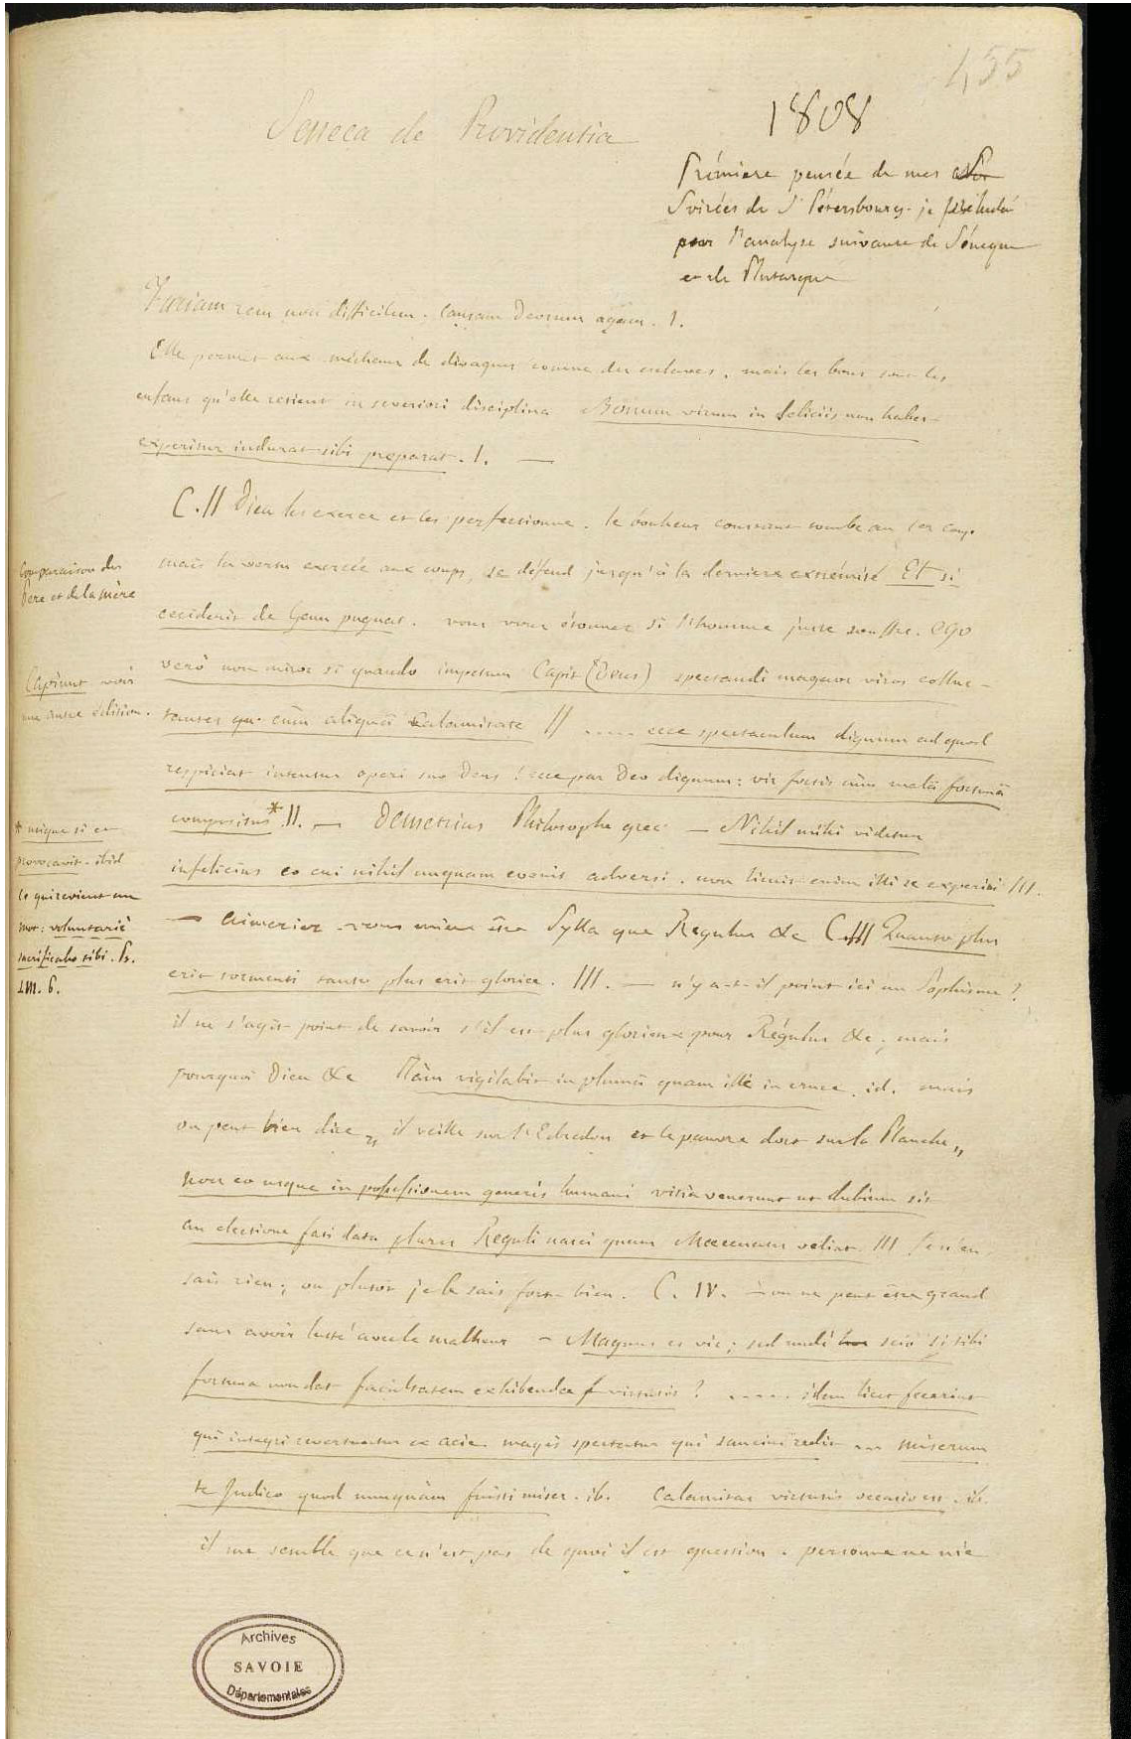 455
1808
Seneca de Providentia
Première pensée de mes
Soirées de St Pétersbourg. je préludai
par l'analyse suivante de Sénèque
et de Plutarque
Faciam rem non difficilem, causam Deorum agam. 1.
Elle permet aux méchans de divaguer comme des esclaves. mais les bons sont les
enfans qu'elle retient in severiori disciplina Bonum virum in deliciis non habet
experitur indurat sibi praeparat. 1. —
C. II Dieu les exerce et les perfectionne. le bonheur constant tombe au 1er coup.
mais la vertu exercée aux coups, se défend jusqu'à la dernière extrémité Et si
ceciderit de Genu pugnat. vous vous étonnez si l'homme juste souffre. Ego
verò non miror si quando impetum Capit (Deus) spectandi magnos viros colluc-
tantes cum aliquâ calamitate II ..... ecce spectaculum dignum ad quod
respiciat intentus operi suo Deus ! ecce par Deo dignum : vir fortis cum malâ fortunâ
compositus* .II. — Demetrius Philosophe grec — Nihil mihi videtur
infelicius eo cui nihil unquam evenit adversi. non licuit enim illi se experiri III.
— aimeriez-vous mieux être Sylla que Regulus &c C.III Quanto plus
erit tormenti tanto plus erit gloriae. III. — n'y a-t-il point ici un Sophisme ?
il ne s'agit point de savoir s'il est plus glorieux pour Régulus &c; mais
pourquoi Dieu &c Tàm vigilabit in plumâ quam ille in cruce. id. mais
on peut bien dire „ il veille sur l'Edredon et le pauvre dort sur la Planche „
non eo usque in possessionem generis humani vitia venerunt ut dubium sit
an electione fati data plures Reguli nasci quam Maecenates velint. III Je n'en
sais rien; ou plutôt je le sais fort bien. C. IV. — on ne peut être grand
sans avoir lutté avec le malheur — Magnus es vir; sed undè scio si tibi
fortuna non dat facultatem exhibendae virtutis ? ..... idem licet fecerint
qui integri revertuntur ex acie magis spectatur qui saucius redit ... miserum
te Judico quod nunquàm fuisti miser. ib. Calamitas virtutis occasio est. ib.
il me semble que ce n'est pas de quoi il est question. personne ne nie
Comparaison du
Père et de la mère
Capiunt voir
une autre édition.
* utique si et
provocavit. ibid
ce qui revient au
mot: voluntariè
sacrificabo tibi. Ps.
LIII. 6.
Archives
SAVOIE
Départementales